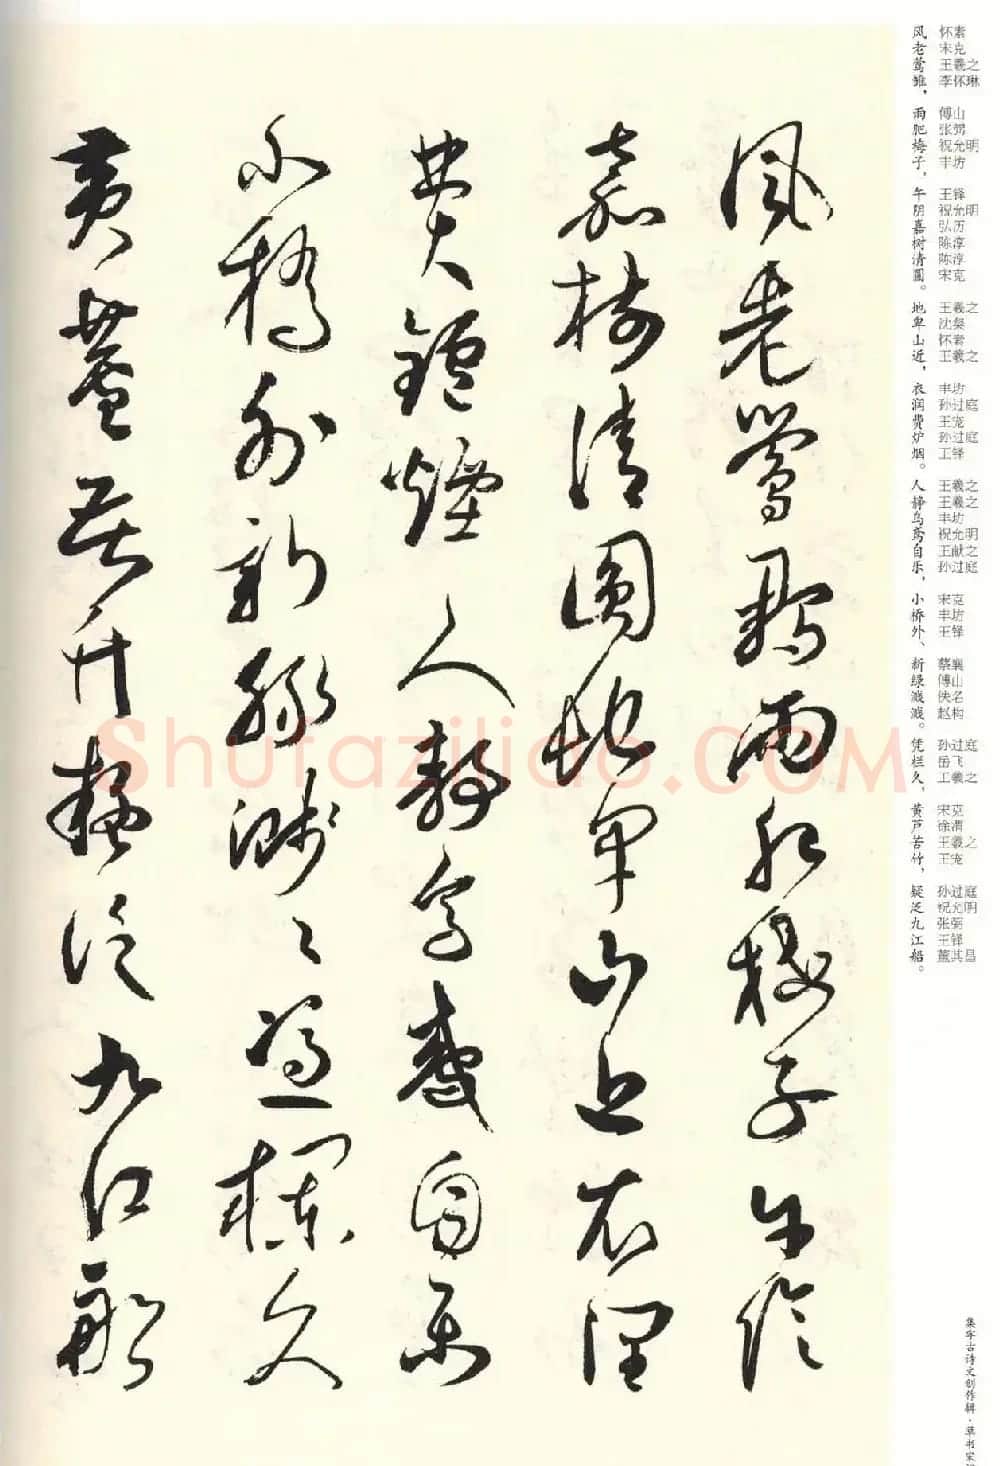 風老鶯雛雨肥梅子午陰
嘉樹清圓地卑山近衣潤
費鑪煙人靜烏鳶自樂
小橋外新綠濺々憑欄久
黃蘆苦竹疑泛九江船
风 怀素
老 宋克
莺 王羲之
雏， 李怀琳
雨 傅山
肥 张弼
梅 祝允明
子， 丰坊
午 王铎
阴 祝允明
嘉 弘历
树 陈淳
清 陈淳
圆。 宋克
地 王羲之
卑 沈粲
山 怀素
近， 王羲之
衣 丰坊
润 孙过庭
费 王宠
炉 孙过庭
烟。 王铎
人 王羲之
静 王羲之
乌 丰坊
鸢 祝允明
自 王献之
乐， 孙过庭
小 宋克
桥 丰坊
外、 王铎
新 蔡襄
绿 傅山
溅 佚名
溅。 赵构
凭 孙过庭
栏 岳飞
久， 王羲之
黄 宋克
芦 徐渭
苦 王羲之
竹， 王宠
疑 孙过庭
泛 祝允明
九 张弼
江 王铎
船。 董其昌
集字古诗文创作辑·草书宋
Shufaziliao.COM